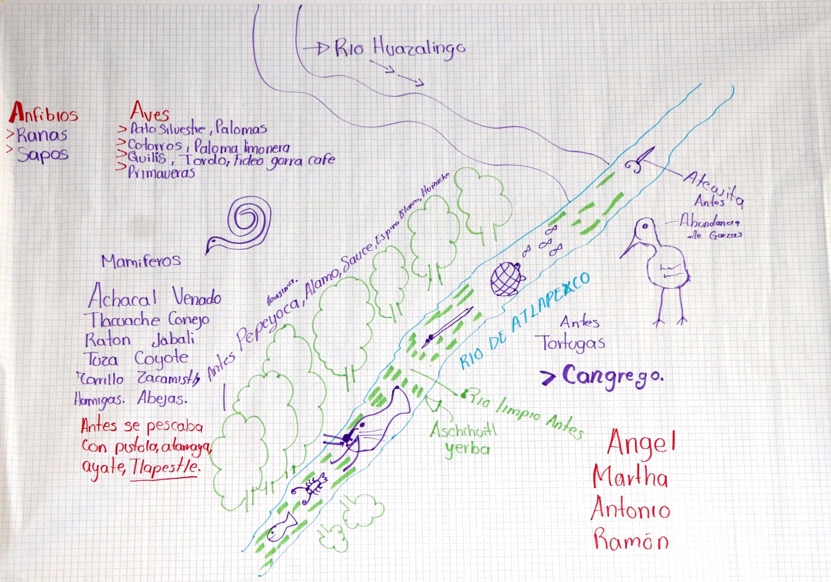 Rio Huazalingo
Anfibios
>Ranas
>Sapos
Aves
>Pato Silvestre, Palomas
>Cotorros, Paloma limonera
>Quilis, Tordo, fideo garra cafe
>Primaveras
Atecuita
Antes
Abundancia
de Garzas
Mamiferos
Achacal Venado
Tlacuache Conejo
Raton Jabali
Tuza Coyote
Zorrillo
Hormigas. Abejas.
Antes se pescaba
Con pistola, atarraya,
ayate, Tlapestle.
Antes Pepeyoca, Alamo, Sauce, Espino Blanco,
RIO DE ATLAPEXCO
Antes
Tortugas
> Cangrego.
Rio limpio Antes
yerba
Angel
Martha
Antonio
Ramón